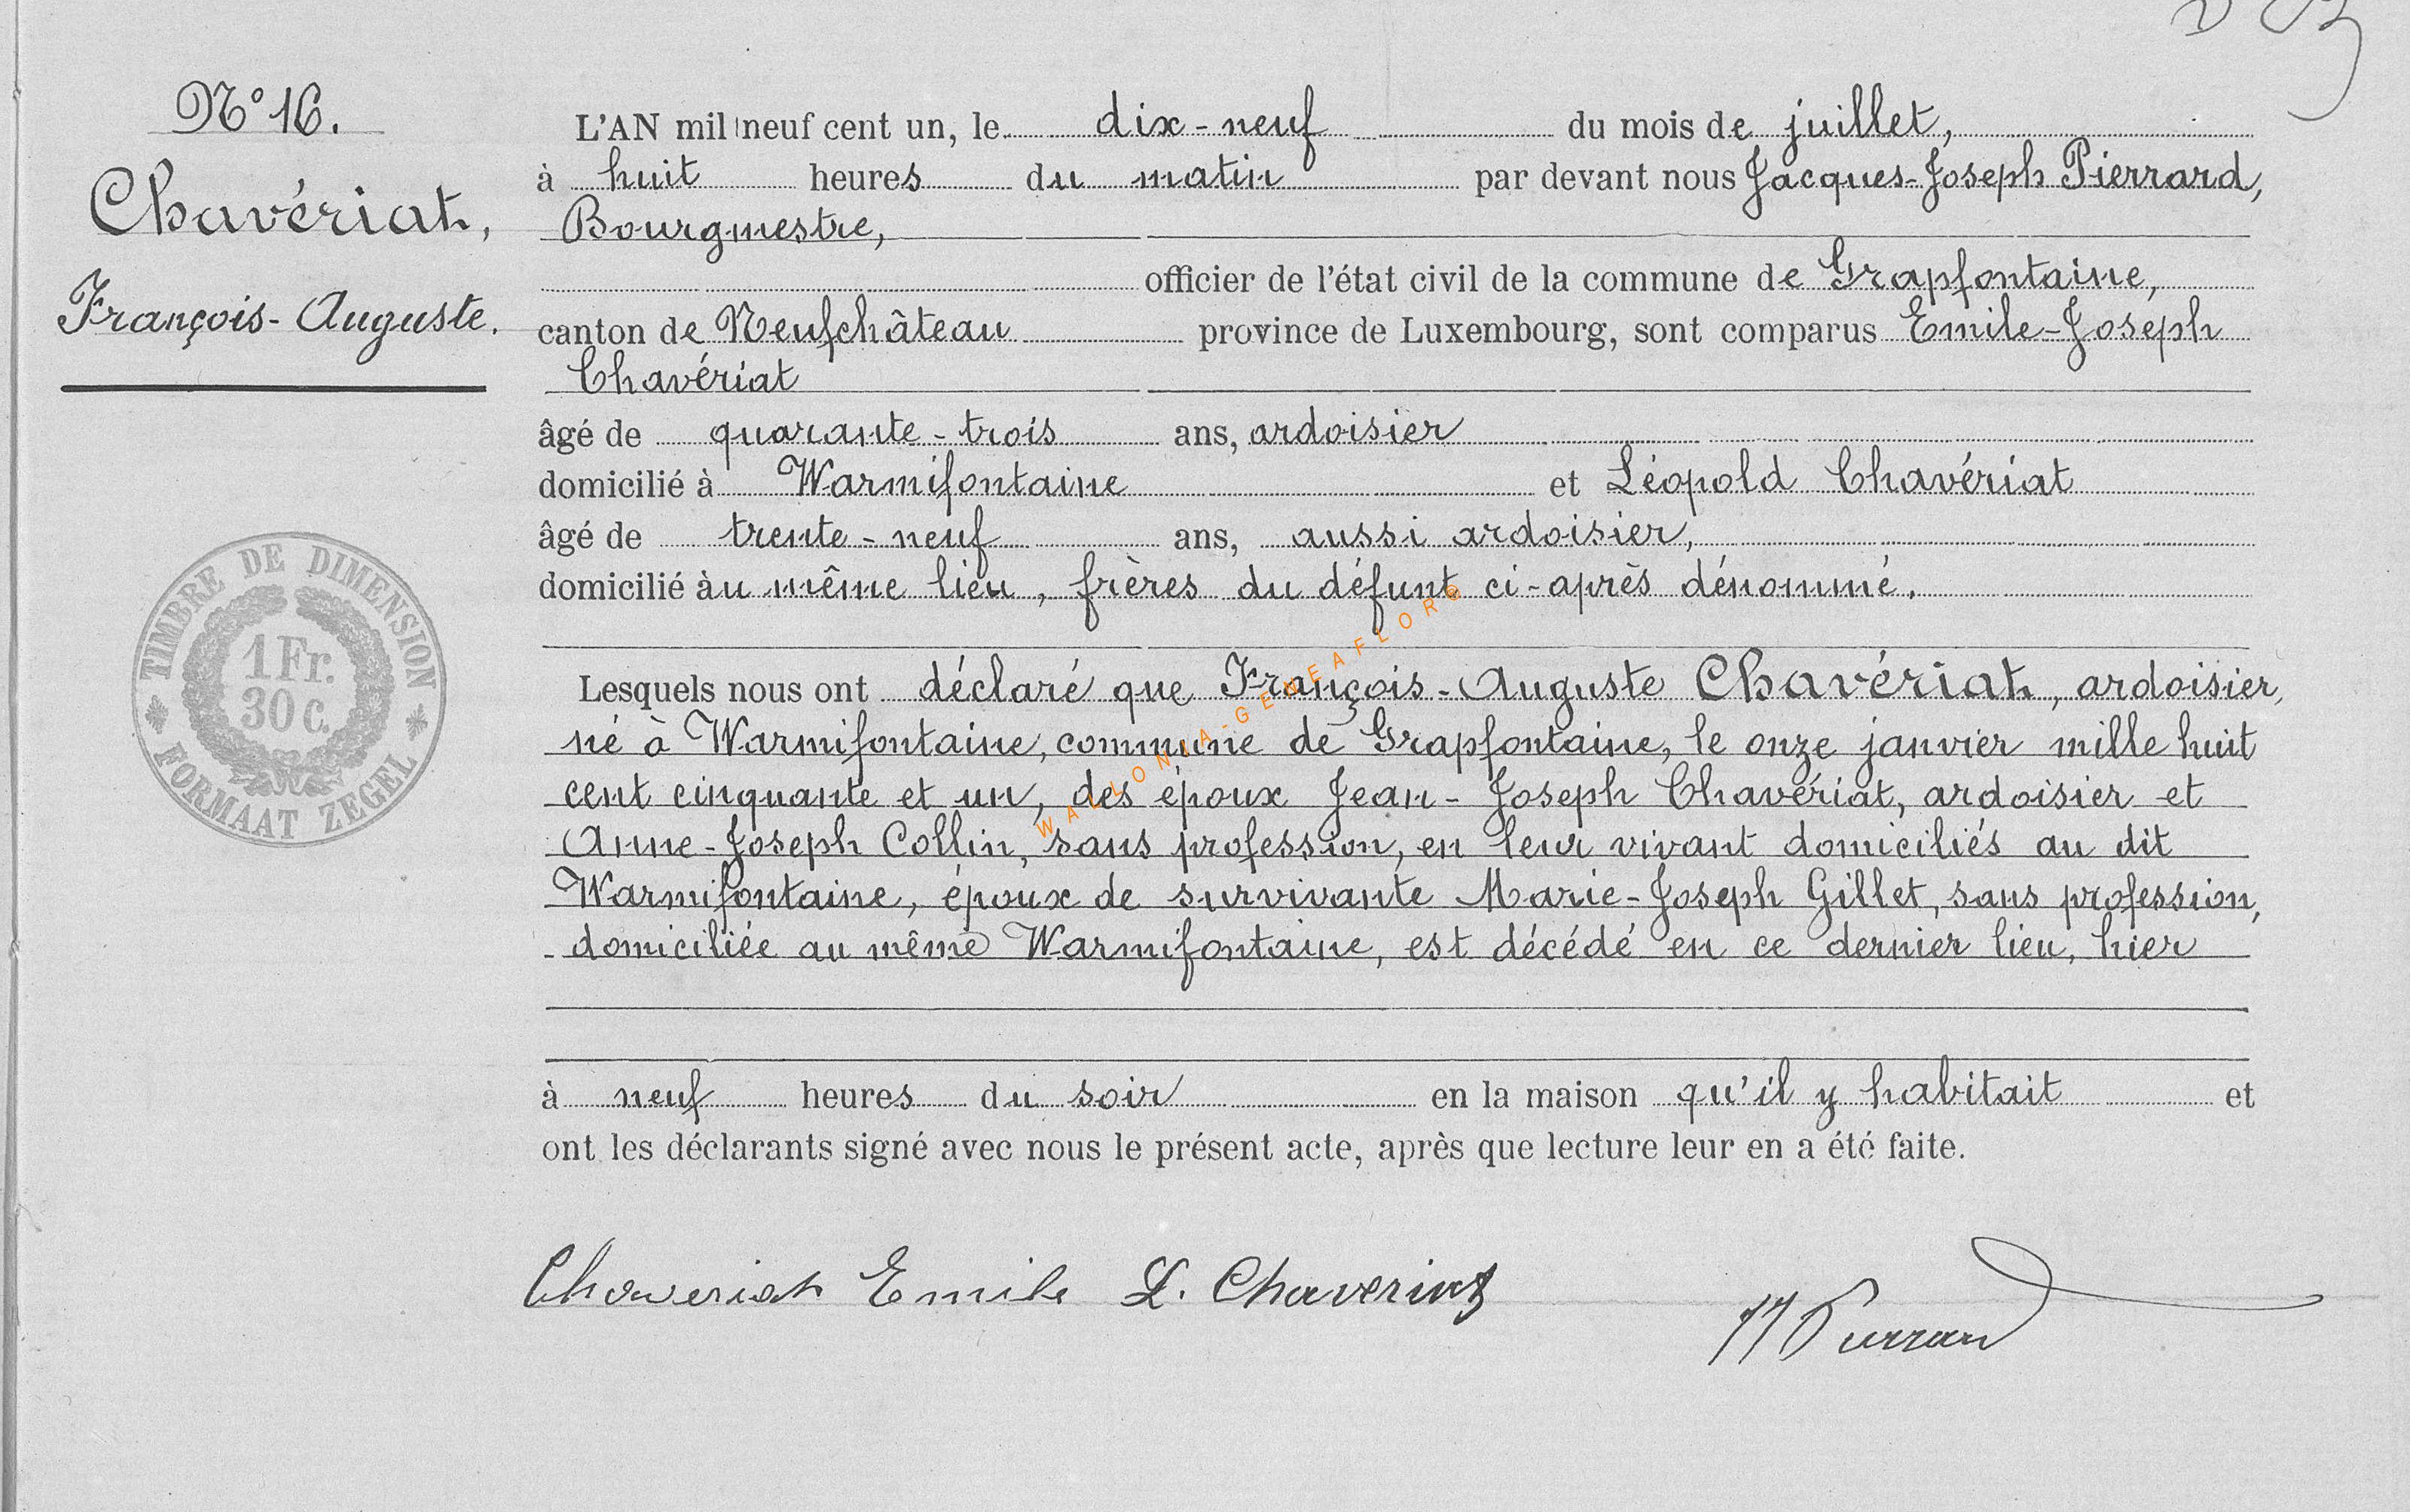 N° 16.
Chavériat,
François-Auguste.
TIMBRE DE DIMENSION
1 Fr.
30 c.
FORMAAT ZEGEL
L'AN mil neuf cent un, le dix-neuf du mois de juillet,
à huit heures du matin par devant nous Jacques-Joseph Pierrard,
Bourgmestre,
officier de l'état civil de la commune de Grapfontaine,
canton de Neufchâteau province de Luxembourg, sont comparus Emile-Joseph
Chavériat
âgé de quarante-trois ans, ardoisier
domicilié à Warmifontaine et Léopold Chavériat
âgé de trente-neuf ans, aussi ardoisier,
domicilié àu même lieu, frères du défunt ci-après dénommé.
Lesquels nous ont déclaré que François-Auguste Chavériat, ardoisier,
né à Warmifontaine, commune de Grapfontaine, le onze janvier mille huit
cent cinquante et un, des époux Jean-Joseph Chavériat, ardoisier et
Anne-Joseph Collin, sans profession, en leur vivant domiciliés au dit
Warmifontaine, époux de survivante Marie-Joseph Gillet, sans profession,
domiciliée au même Warmifontaine, est décédé en ce dernier lieu, hier
à neuf heures du soir en la maison qu'il y habitait et
ont les déclarants signé avec nous le présent acte, après que lecture leur en a été faite.
Chaveriat Emile L. Chaveriat
JJ Pierrard
WALLONIA-GENEAFLORE